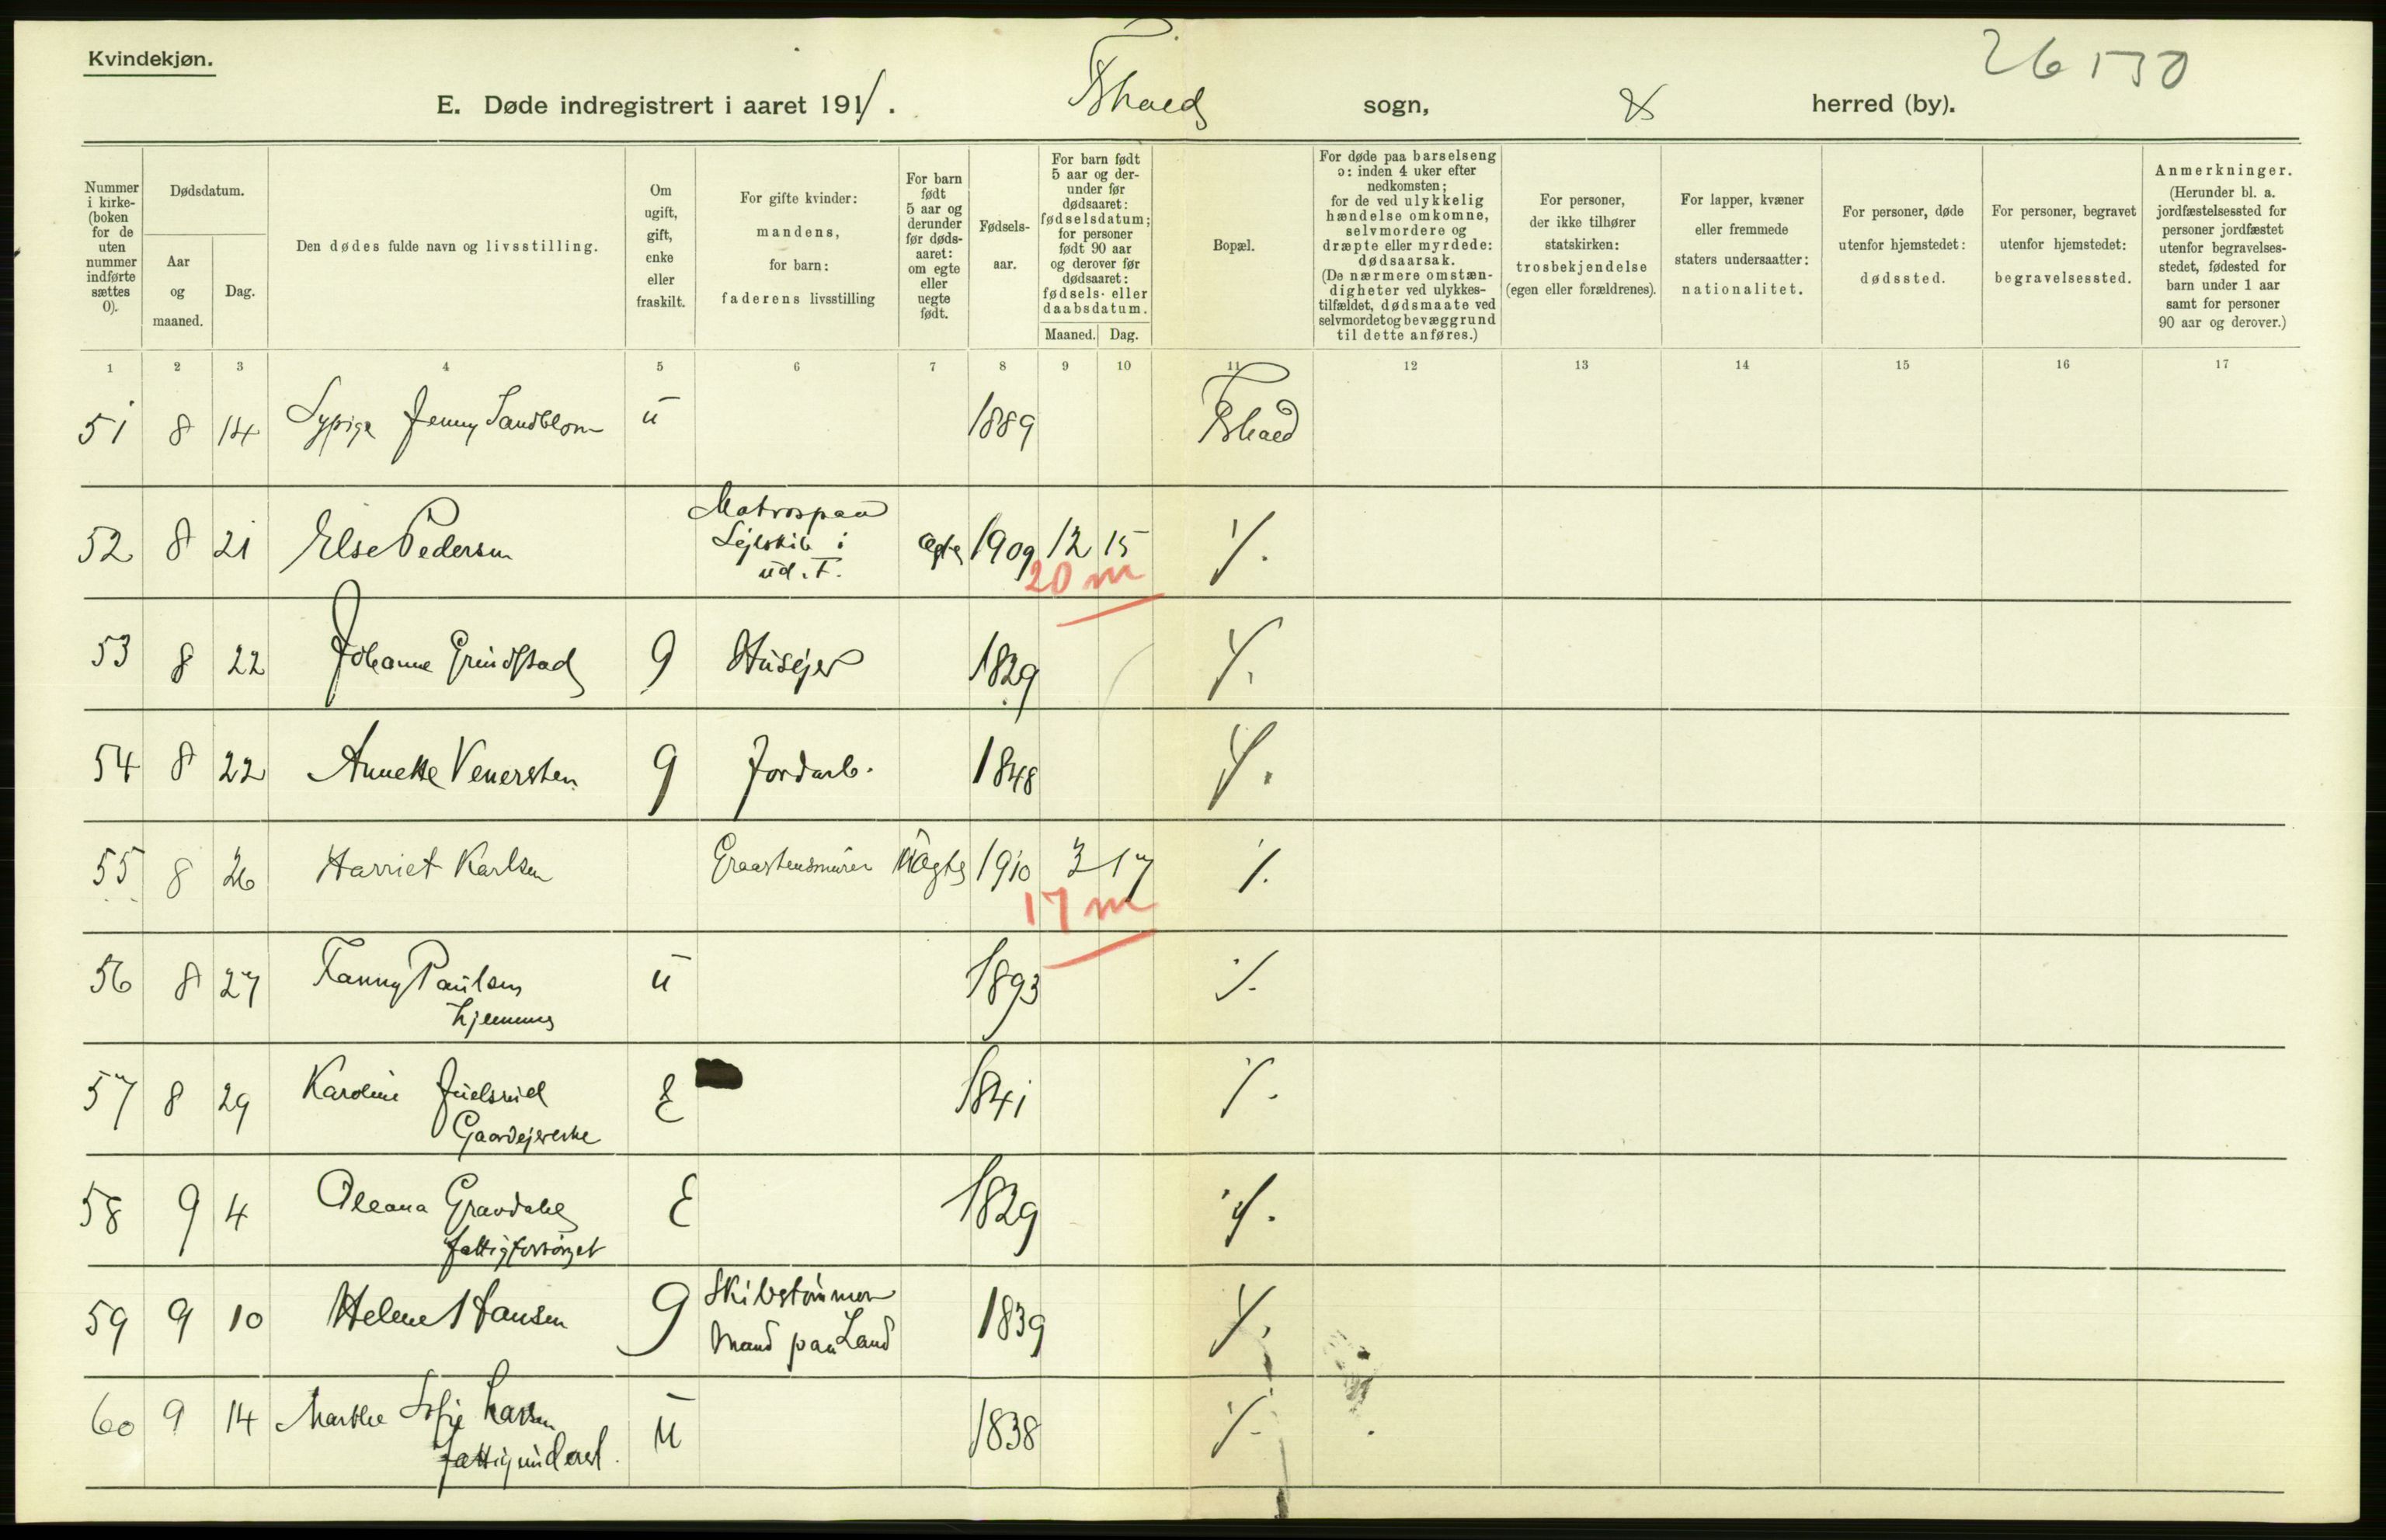 Kvindekjøn.
26 130
E. Døde indregistrert i aaret 1911. Fshald sogn, herred (by).
Nummer i kirke- (boken for de uten nummer indførte sættes 0).
Dødsdatum.
Aar og maaned.
Dag.
Den dødes fulde navn og livsstilling.
Om ugift, gift, enke eller fraskilt.
For gifte kvinder: mandens, for barn: faderens livsstilling
For barn født 5 aar og derunder før døds- aaret: om egte eller uegte født.
Fødsels- aar.
For barn født 5 aar og der- under før dødsaaret: fødselsdatum; for personer født 90 aar og derover før dødsaaret: fødsels- eller daabsdatum.
Maaned. Dag.
Bopæl.
For døde paa barselseng ɔ: inden 4 uker efter nedkomsten; for de ved ulykkelig hændelse omkomne, selvmordere og dræpte eller myrdede: dødsaarsak. (De nærmere omstæn- digheter ved ulykkes- tilfældet, dødsmaate ved selvmordet og bevæggrund til dette anføres.)
For personer, der ikke tilhører statskirken: trosbekjendelse (egen eller forældrenes).
For lapper, kvæner eller fremmede staters undersaatter: nationalitet.
For personer, døde utenfor hjemstedet: dødssted.
For personer, begravet utenfor hjemstedet: begravelsessted.
Anmerkninger. (Herunder bl. a. jordfæstelsessted for personer jordfæstet utenfor begravelses- stedet, fødested for barn under 1 aar samt for personer 90 aar og derover.)
1 2 3 4 5 6 7 8 9 10 11 12 13 14 15 16 17
51 8 14 Sypige Jenny Sandblom u 1889 Fshald
52 8 21 Else Pedersen Matros paa Sejlskib i ud. F. Egte 1909 12 15 ./.
20 m
53 8 22 Johanne Grindstad g Husejer 1829 ./.
54 8 22 Annette Venersten g Jordarb. 1848 ./.
55 8 26 Harriet Karlsen Graastensmurer Uægte 1910 3 17 ./.
17 m
56 8 27 Fanny Paulsen u 1893 ./.
hjemme
57 8 29 Karoline E 1841 ./.
Gaardejerenke
58 9 4 Oleana Gravdahl E 1829 ./.
fattigforsørget
59 9 10 Helene Hansen g Skibstømmermand paa Land 1839 ./.
60 9 14 Marthe Sofie Larsen u 1838 ./.
fattigunderst.